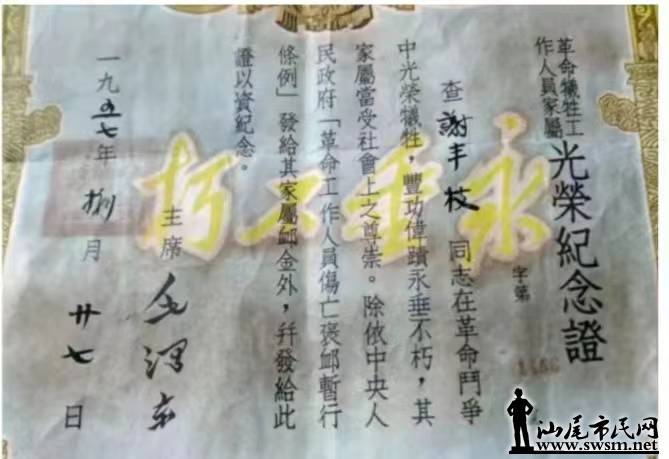 革命犧牲工
作人員家屬
光榮紀念證
字第
查謝丰枝同志在革命鬥爭
中光榮犧牲，豐功偉蹟永垂不朽，其
家屬當受社會上之尊崇。除依中央人
民政府「革命工作人員傷亡褒卹暫行
條例」發給其家屬卹金外，幷發給此
證以資紀念。
主席 毛澤东
一九五七年捌月廿七日
永垂不朽
汕尾市民网
www.swsm.net